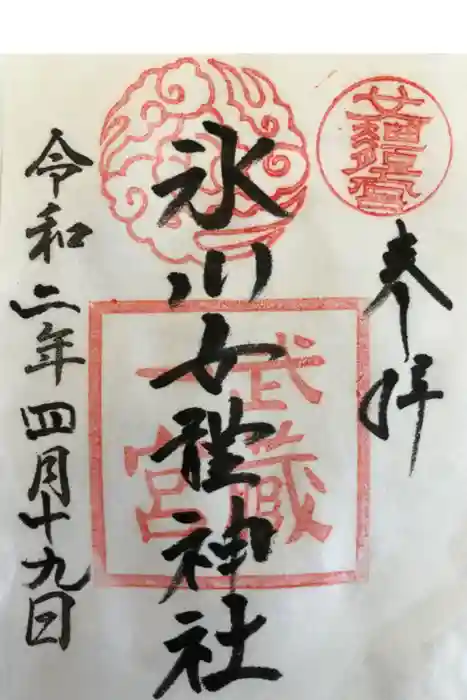 奉拝
氷川女體神社
武蔵
一宮
令和二年四月十九日